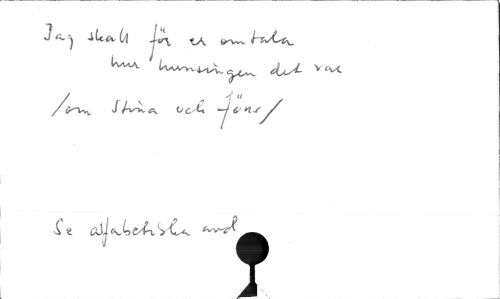 Jag skall för er omtala
hur hunsingen det var
/om Stina och Jöns/
Se alfabetiska avd